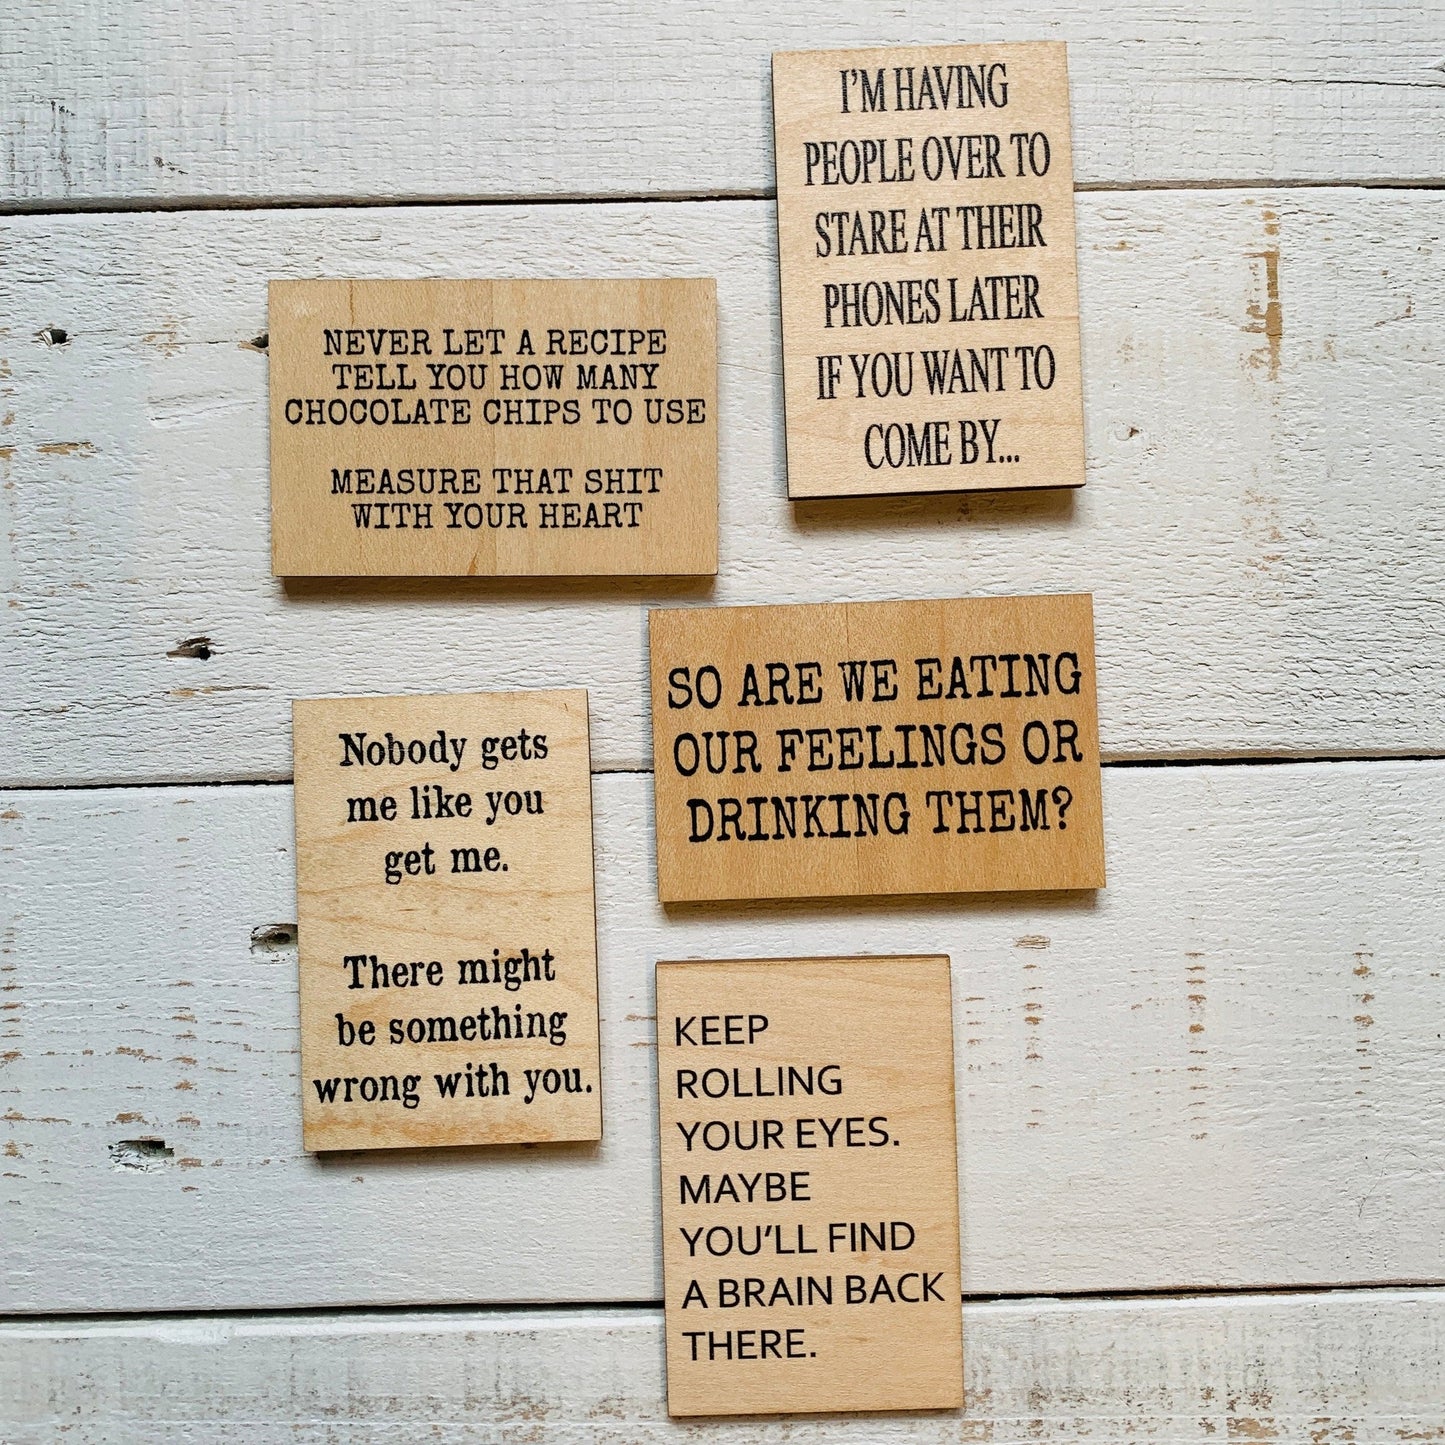 I'M HAVING
PEOPLE OVER TO
STARE AT THEIR
PHONES LATER
IF YOU WANT TO
COME BY...
NEVER LET A RECIPE
TELL YOU HOW MANY
CHOCOLATE CHIPS TO USE
MEASURE THAT SHIT
WITH YOUR HEART
SO ARE WE EATING
OUR FEELINGS OR
DRINKING THEM?
Nobody gets
me like you
get me.
There might
be something
wrong with you.
KEEP
ROLLING
YOUR EYES.
MAYBE
YOU'LL FIND
A BRAIN BACK
THERE.